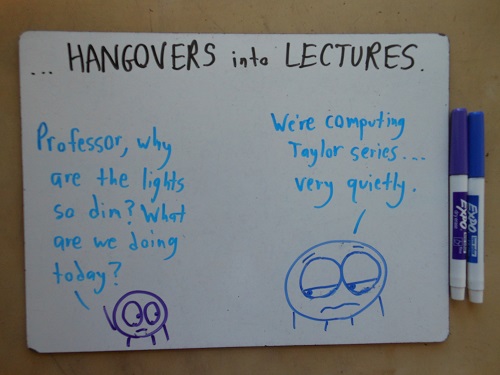 ... HANGOVERS into LECTURES.
Professor, why
are the lights
so dim? What
are we doing
today?
We're computing
Taylor series...
very quietly.
EXPO
EXPO